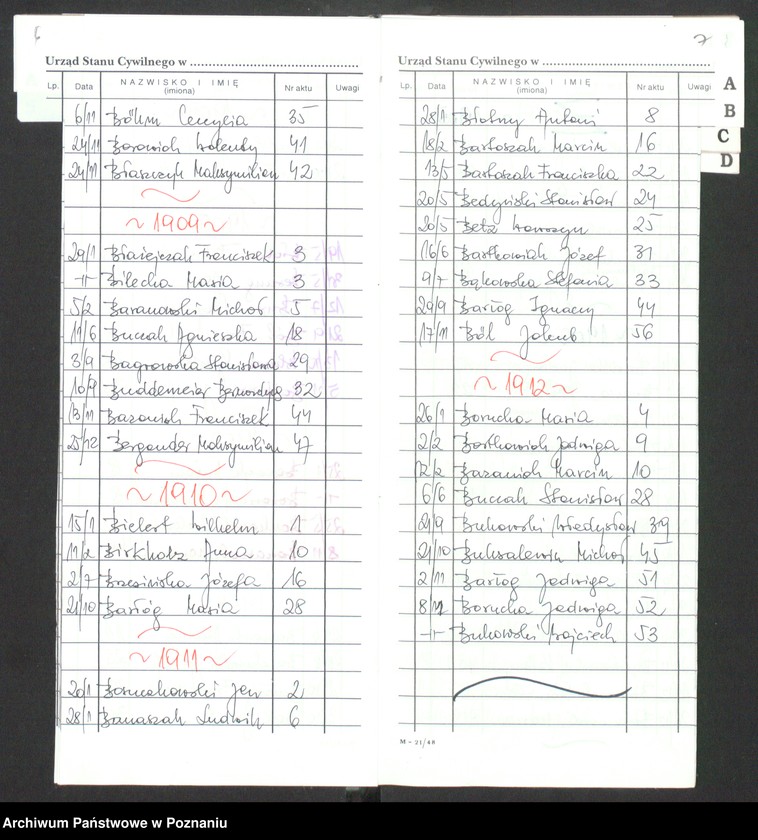 6
Urząd Stanu Cywilnego w
Lp. Data NAZWISKO I IMIĘ (imiona) Nr aktu Uwagi
6/11 Böhm Cecylia 35
24/11 41
24/11 Błaszczyk Maksymilian 42
~ 1909 ~
29/1 Błażejczak Franciszek 3
-11- Bilecka Maria 3
5/2 Baranowski Michał 5
11/6 Buczak Agnieszka 18
3/9 Bagrowska Stanisława 29
10/9 Buddemeier 32
13/11 Bazaniak Franciszek 44
25/12 Bergander Maksymilian 47
~ 1910 ~
15/1 Bielert Wilhelm 1
11/2 Birkholz Anna 10
2/7 Brzezińska Józefa 16
21/10 Barłóg Maria 28
~ 1911 ~
20/1 Jan 2
28/1 Banaszak Ludwik 6
7
Urząd Stanu Cywilnego w
Lp. Data NAZWISKO I IMIĘ (imiona) Nr aktu Uwagi
A
B
C
D
28/1 Błotny Antoni 8
18/2 Bartoszak Marcin 16
13/5 Bartoszak Franciszka 22
20/5 Bedyński Stanisław 24
20/5 Betz Wawrzyn 25
16/6 Bartkowiak Józef 31
9/7 Bąkowska Stefania 33
29/9 Barłóg Ignacy 44
17/11 Ból Jakub 56
~ 1912 ~
26/1 Borucka Maria 4
2/2 Bartkowiak Jadwiga 9
12/2 Bazaniak Marcin 10
6/6 Buczak Stanisław 28
21/9 Bukowski Władysław 39
21/10 Michał 45
2/11 Barłóg Jadwiga 51
8/12 Borucka Jadwiga 52
-11- Bukowski Wojciech 53
M - 21/48
Archiwum Państwowe w Poznaniu